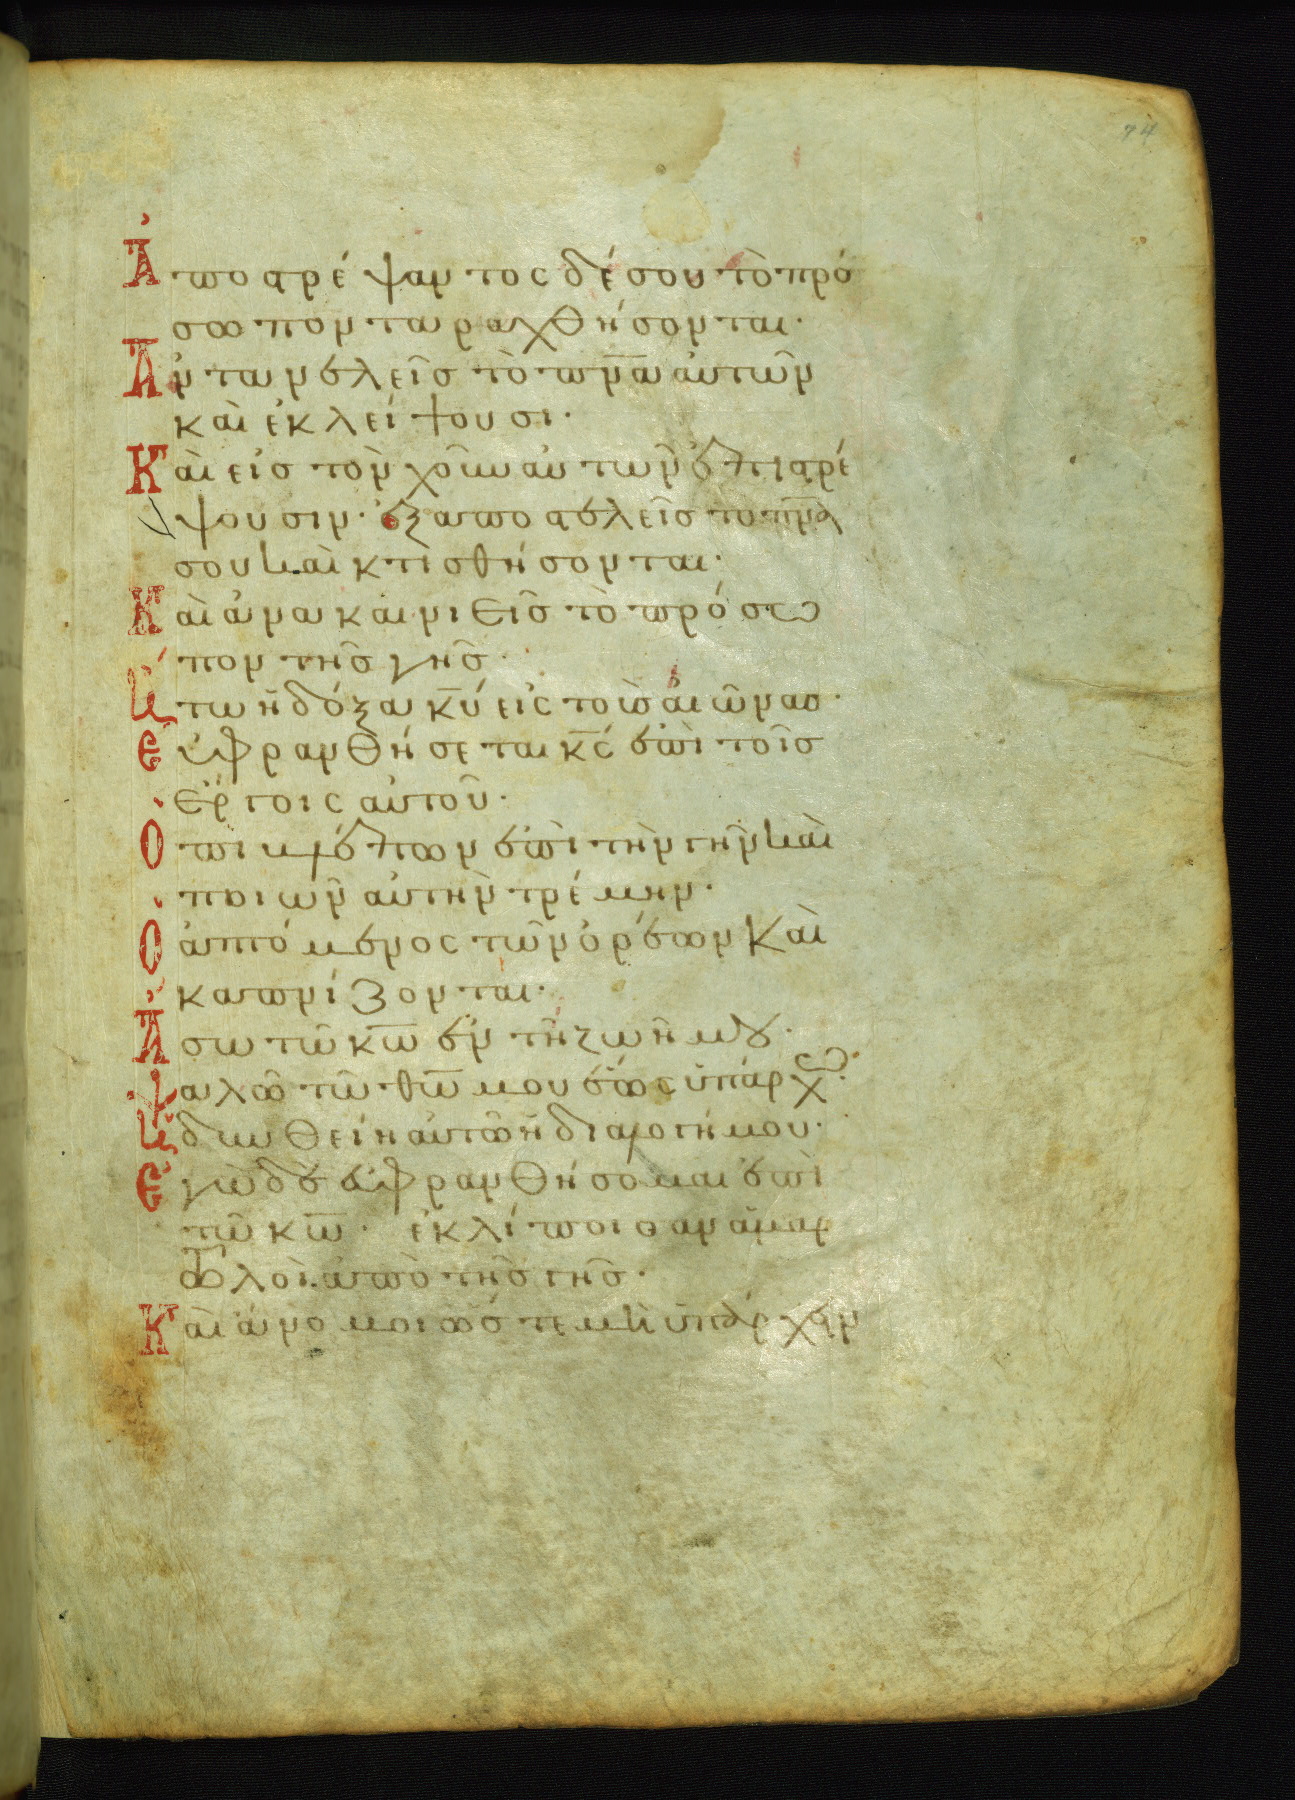 74
Ἀποστρέψαντος δέ σου τὸ πρό
σωπον ταραχθήσονται·
Ἀντανελεῖς τὸ πν̅α αὐτῶν
καὶ ἐκλείψουσι·
Καὶ εἰς τὸν χοῦν αὐτῶν ἐπιστρέ
ψουσιν· ἐξαποστελεῖς το πν̅α
σου καὶ κτισθήσονται·
Καὶ ἀνακαινιεῖς τὸ πρόσω
πον τῆς γῆς·
Ἤτω ἡ δόξα κ̅υ εἰς τοὺς αἰῶνας·
Εὐφρανθήσεται κ̅ς ἐπὶ τοῖς
ἔργοις αὐτοῦ·
Ὁ ἐπιβλέπων ἐπὶ τὴν γῆν καὶ
ποιῶν αὐτὴν τρέμειν·
Ὁ ἁπτόμενος τῶν ὀρέων καὶ
καπνίζονται·
Ἄσω τῶ κ̅ω ἐν τῆ ζωῆ μου·
ψαλῶ τῶ θ̅ω μου ἕως ὑπάρχω·
Ἡδυνθείη αὐτῶ ἡ διαλογή μου·
Ἐγὼ δὲ εὐφρανθήσομαι ἐπὶ
τῶ κ̅ω· ἐκλίποισαν ἁμαρ
τωλοὶ ἀπὸ τῆς γῆς·
Καὶ ἄνομοι ὥστε μὴ ὑπάρχειν